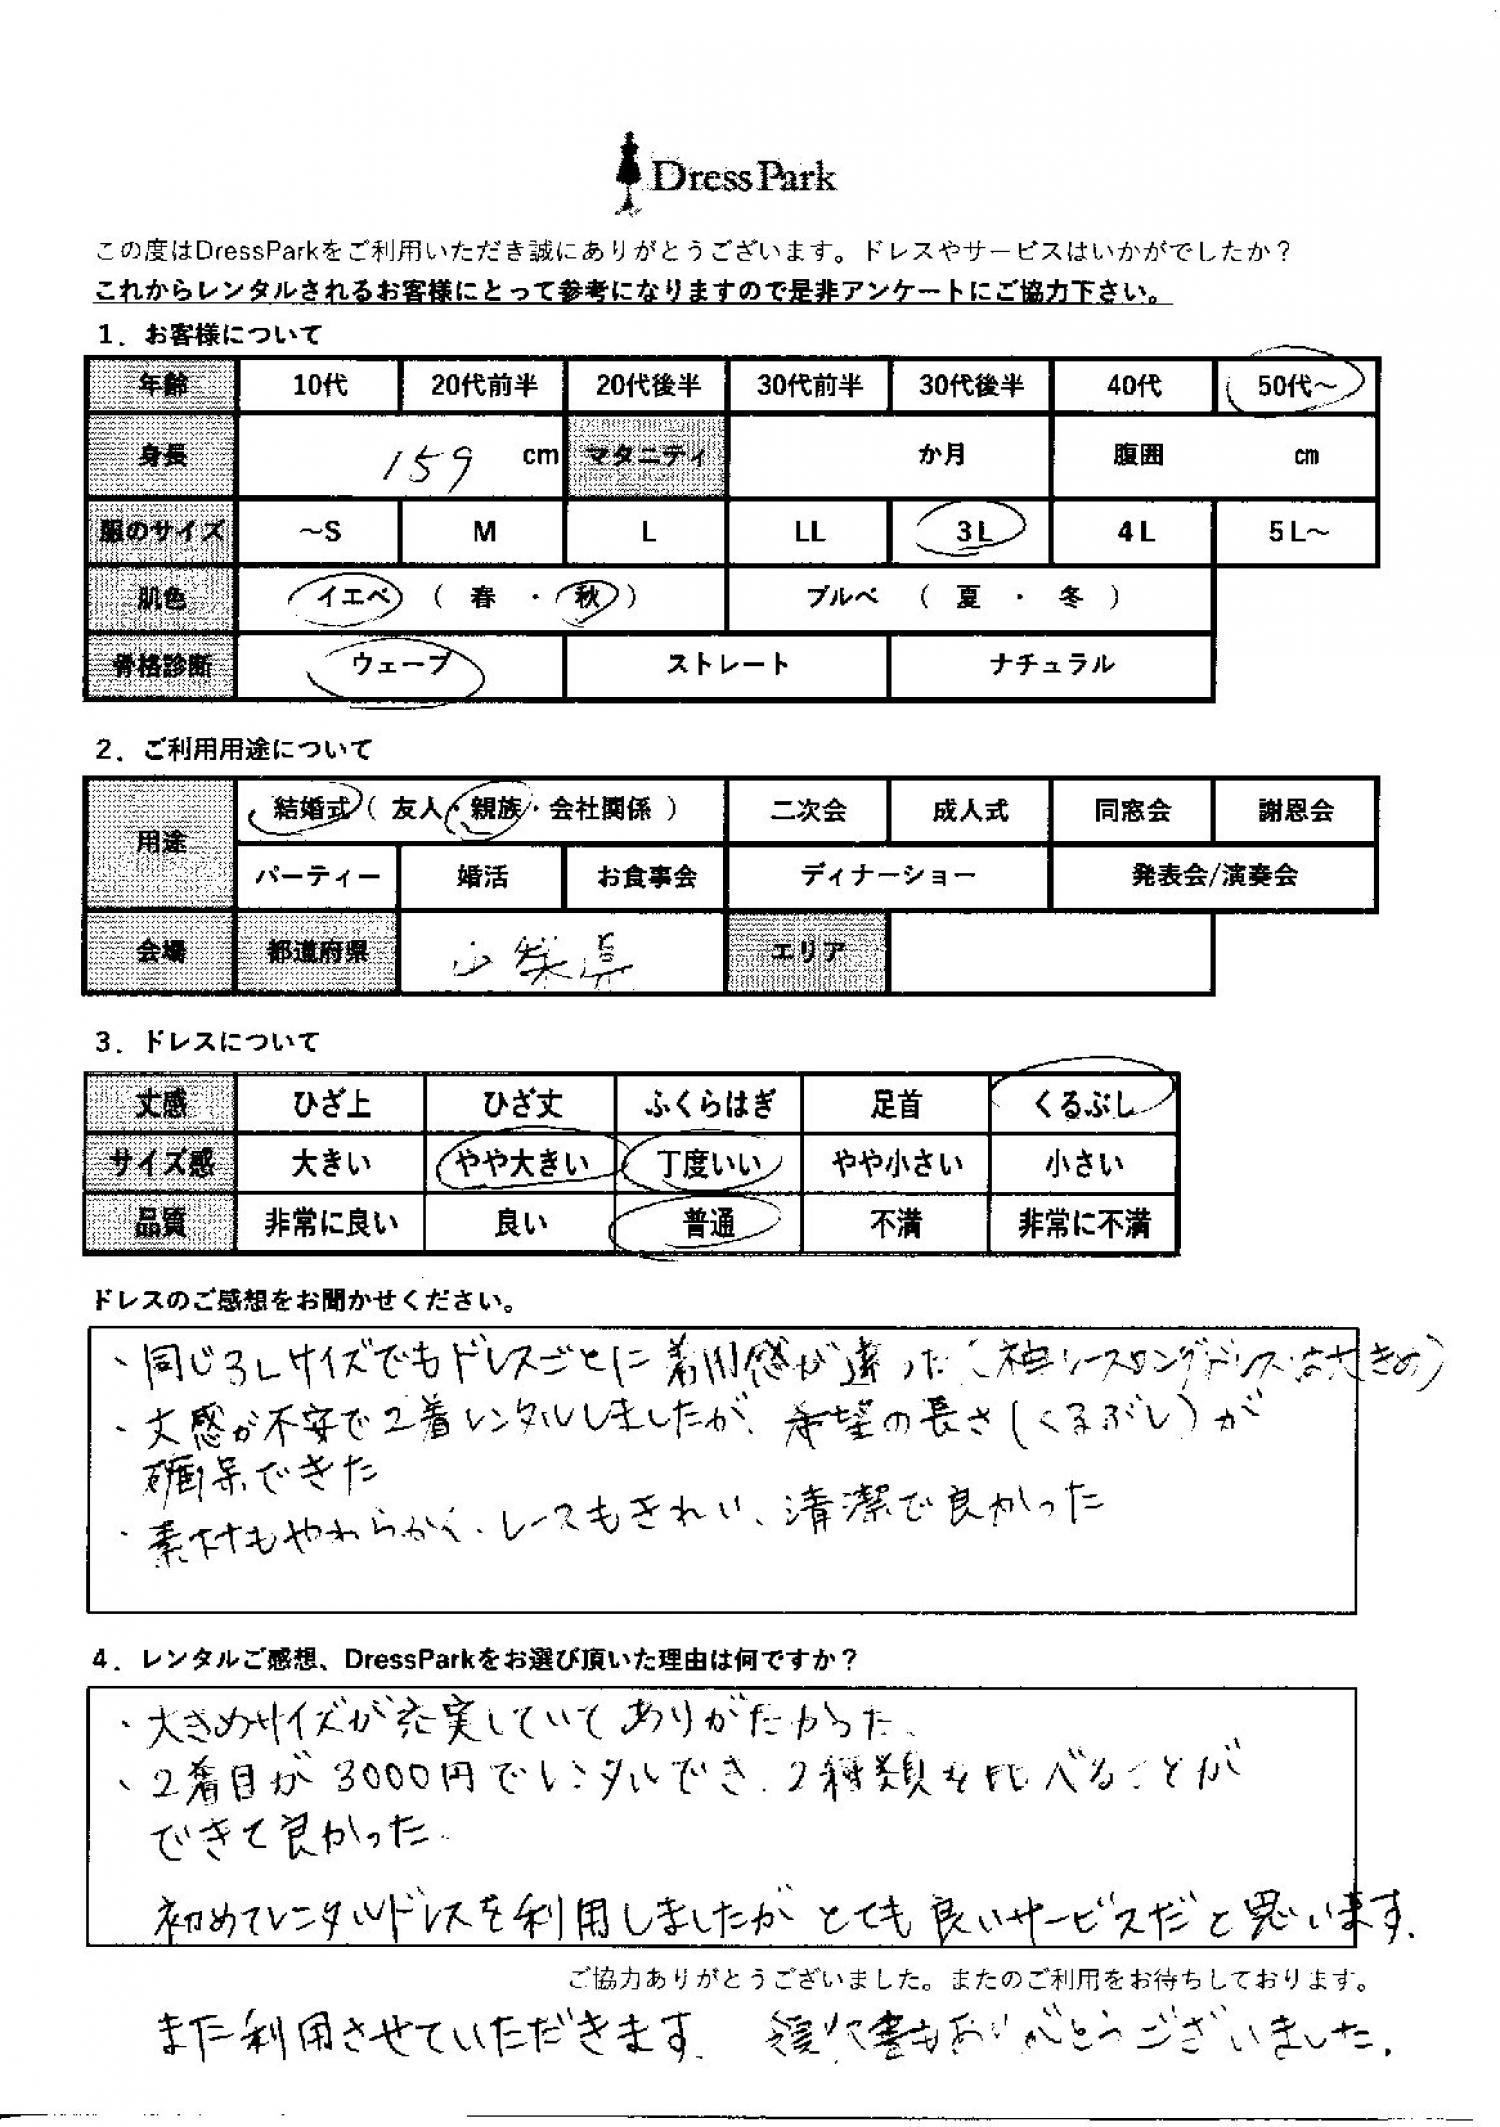 DressPark
この度はDressParkをご利用いただき誠にありがとうございます。ドレスやサービスはいかがでしたか？
これからレンタルされるお客様にとって参考になりますので是非アンケートにご協力下さい。
1．お客様について
年齢 10代 20代前半 20代後半 30代前半 30代後半 40代 50代～
身長 159 cm マタニティ か月 腹囲 cm
服のサイズ ～S M L LL 3L 4L 5L～
肌色 イエベ （ 春 ・ 秋 ） ブルベ （ 夏 ・ 冬 ）
骨格診断 ウェーブ ストレート ナチュラル
2．ご利用用途について
用途 結婚式（ 友人・親族・会社関係 ） 二次会 成人式 同窓会 謝恩会
パーティー 婚活 お食事会 ディナーショー 発表会/演奏会
会場 都道府県 山梨県 エリア
3．ドレスについて
丈感 ひざ上 ひざ丈 ふくらはぎ 足首 くるぶし
サイズ感 大きい やや大きい 丁度いい やや小さい 小さい
品質 非常に良い 良い 普通 不満 非常に不満
ドレスのご感想をお聞かせください。
・同じ3Lサイズでもドレスごとに着用感が違った（袖レースロングドレスは大きめ）
・丈感が不安で2着レンタルしましたが、希望の長さ（くるぶし）が
確保できた
・素材もやわらかく、レースもきれい、清潔で良かった
4．レンタルご感想、DressParkをお選び頂いた理由は何ですか？
・大きめサイズが充実していてありがたかった。
・2着目が3000円でレンタルでき、2種類を比べることが
できて良かった。
初めてレンタルドレスを利用しましたがとても良いサービスだと思います。
ご協力ありがとうございました。またのご利用をお待ちしております。
また利用させていただきます。 もありがとうございました。